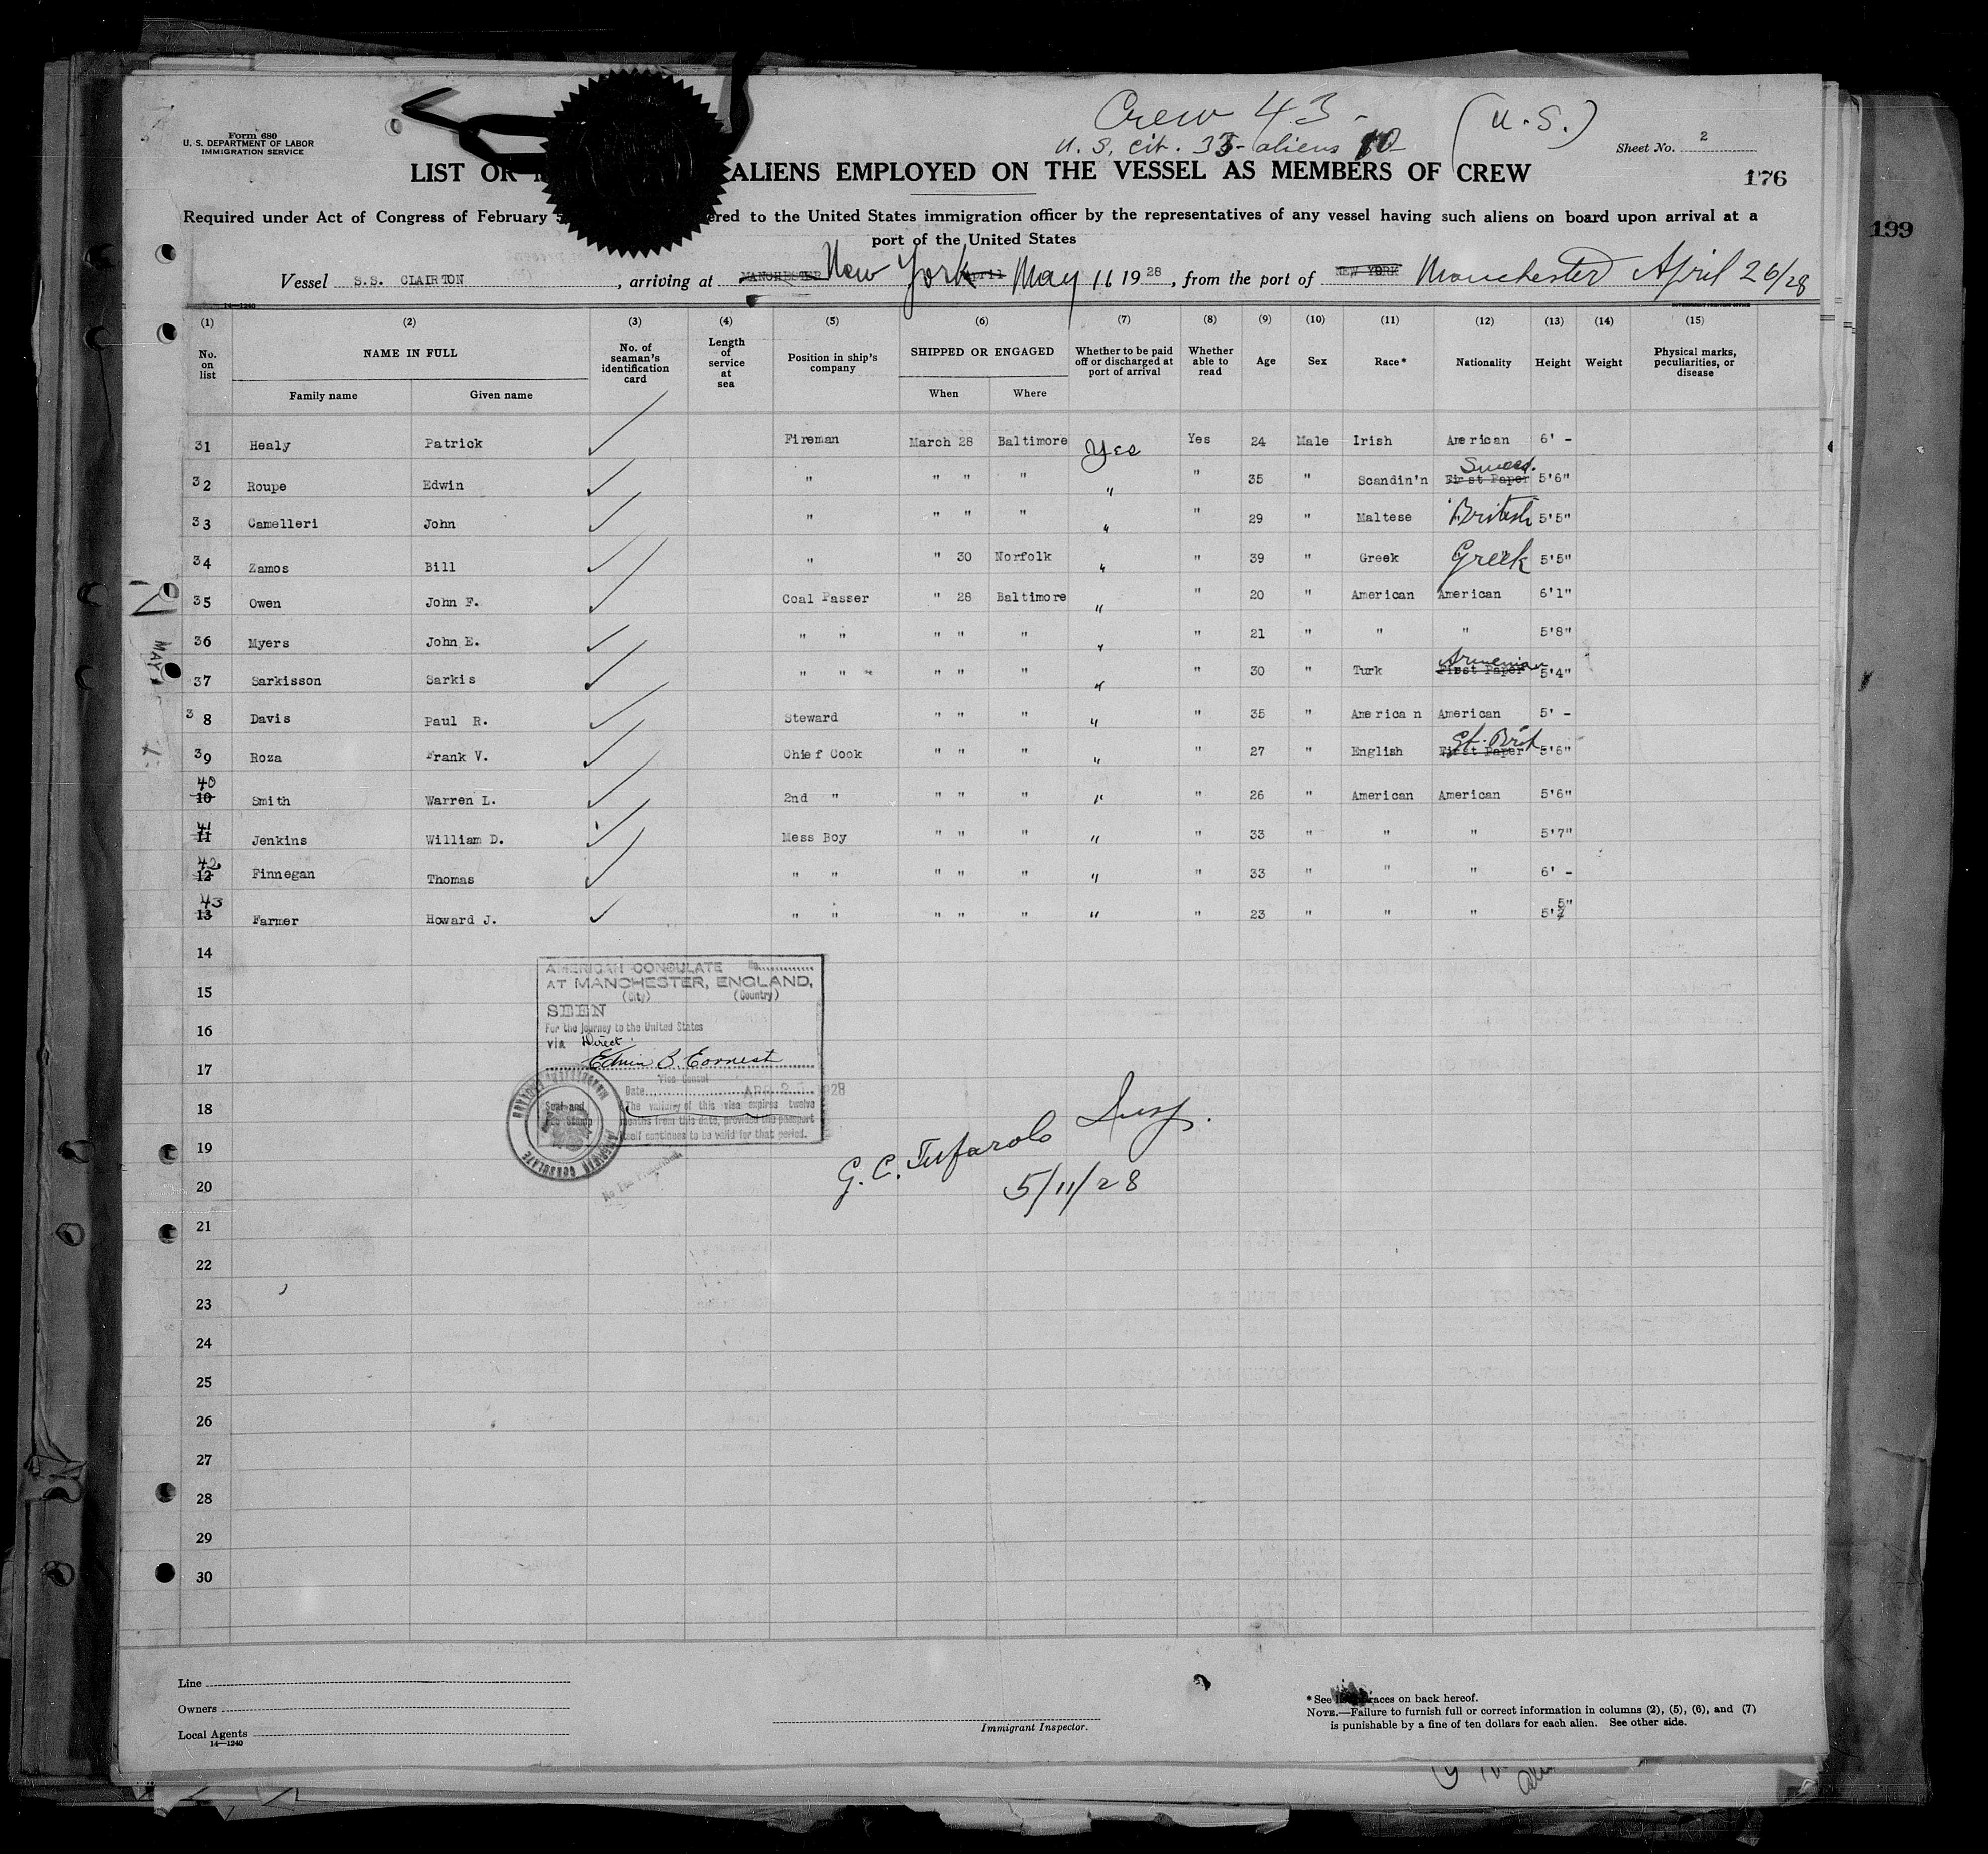 Crew 43 - (U.S.)
U.S. cit. 33 - aliens 10
Form 680
U. S. DEPARTMENT OF LABOR
IMMIGRATION SERVICE
Sheet No. 2
LIST OR ALIENS EMPLOYED ON THE VESSEL AS MEMBERS OF CREW
176
199
Required under Act of Congress of February 5 ered to the United States immigration officer by the representatives of any vessel having such aliens on board upon arrival at a
port of the United States
Vessel S.S. CLAIRTON, arriving at MANCHESTER New York April May 11 1928, from the port of NEW YORK Manchester April 26/28
14—1240
(1) (2) (3) (4) (5) (6) (7) (8) (9) (10) (11) (12) (13) (14) (15)
No. on list NAME IN FULL No. of seaman's identification card Length of service at sea Position in ship's company SHIPPED OR ENGAGED Whether to be paid off or discharged at port of arrival Whether able to read Age Sex Race* Nationality Height Weight Physical marks, peculiarities, or disease
Family name Given name When Where
31 Healy Patrick Fireman March 28 Baltimore Yes Yes 24 Male Irish American 6' -
32 Roupe Edwin " " " " " " 35 " Scandin'n First Paper Swed. 5'6"
33 Camelleri John " " " " " " 29 " Maltese British 5'5"
34 Zamos Bill " " 30 Norfolk " " 39 " Greek Greek 5'5"
35 Owen John F. Coal Passer " 28 Baltimore " " 20 " American American 6'1"
36 Myers John E. " " " " " " " 21 " " " 5'8"
37 Sarkisson Sarkis " " " " " " " 30 " Turk First Paper Armenian 5'4"
38 Davis Paul R. Steward " " " " " 35 " American American 5' -
39 Roza Frank V. Chief Cook " " " " " 27 " English First Paper Gt. Brit. 5'6"
40 10 Smith Warren L. 2nd " " " " " " 26 " American American 5'6"
41 11 Jenkins William D. Mess Boy " " " " " 33 " " " 5'7"
42 12 Finnegan Thomas " " " " " " " 33 " " " 6' -
43 13 Farmer Howard J. " " " " " " " 23 " " " 5' 5"
14
15
16
17
18
19
20
21
22
23
24
25
26
27
28
29
30
AMERICAN CONSULATE No.
AT MANCHESTER, ENGLAND,
(City) (Country)
SEEN
For the journey to the United States
via Direct.
Edwin B. Earnest
Vice Consul
Date APR 1928
Seal and Fee Stamp
The validity of this visa expires twelve
months from this date, provided the passport
itself continues to be valid for that period.
AMERICAN CONSULATE
MANCHESTER, ENGLAND
No Fee Prescribed
G. C. Insp.
5/11/28
MAY
Line
Owners
Local Agents
14—1240
Immigrant Inspector.
*See races on back hereof.
NOTE.—Failure to furnish full or correct information in columns (2), (5), (6), and (7)
is punishable by a fine of ten dollars for each alien. See other side.